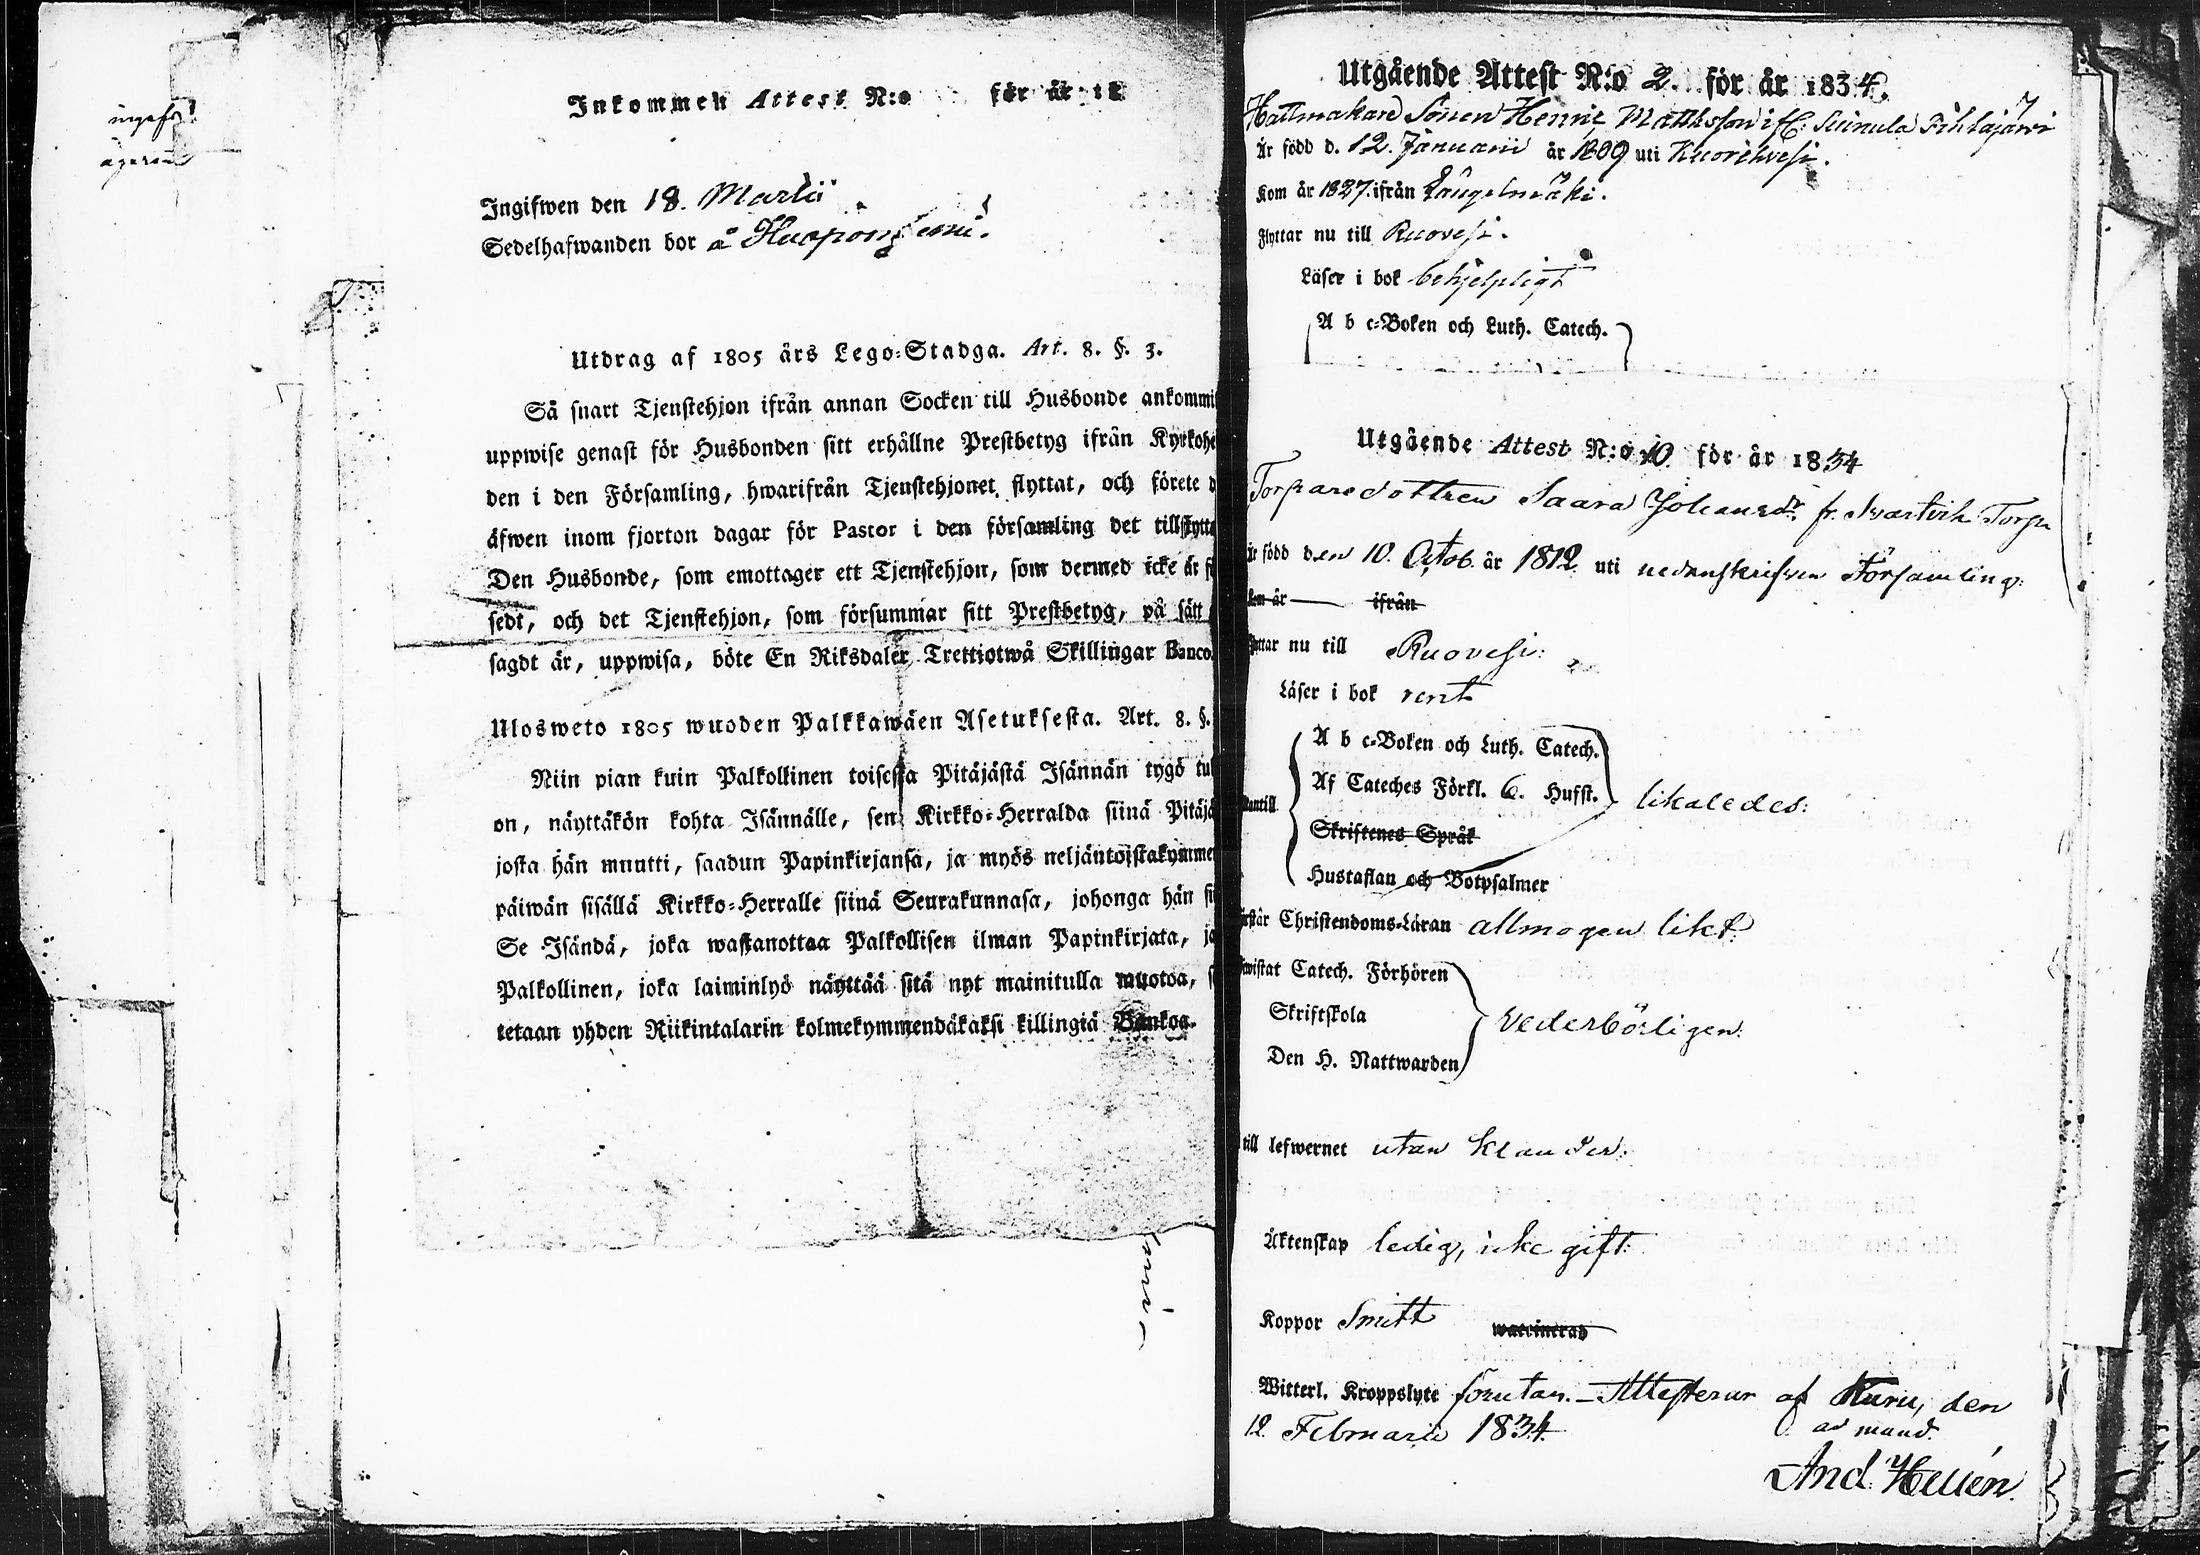 ingafö
ägaren
Inkommen Attest N:o för år 18
Ingifwen den 18. Martii
Sedelhafwanden bor å
Utdrag af 1805 års Lego-Stadga. Art. 8. §. 3.
Så snart Tjenstehjon ifrån annan Socken till Husbonde ankommi
uppwise genast för Husbonden sitt erhållne Prestbetyg ifrån Kyrkohe
den i den Församling, hwarifrån Tjenstehjonet flyttat, och förete d
äfwen inom fjorton dagar för Pastor i den församling det tillflytta
Den Husbonde, som emottager ett Tjenstehjon, som dermed icke är f
sedt, och det Tjenstehjon, som försummar sitt Prestbetyg, på sätt
sagdt är, uppwisa, böte En Riksdaler Trettiotwå Skillingar Banco.
Ulosweto 1805 wuoden Palkkawäen Asetuksesta. Art. 8. §.
Niin pian kuin Palkollinen toisesta Pitäjästä Isännän tygö tu
on, näyttäkön kohta Isännälle, sen Kirkko-Herralda siinä Pitäjä
josta hän muutti, saadun Papinkirjansa, ja myös neljäntoistakymme
päiwän sisällä Kirkko-Herralle siinä Seurakunnasa, johonga hän si
Se Isändä, joka wastanottaa Palkollisen ilman Papinkirjata, ja
Palkollinen, joka laiminlyö näyttää sitä nyt mainitulla muotoa, s
tetaan yhden Riikintalarin kolmekymmendäkaksi killingiä Bankoa.
Utgående Attest N:o 2. för år 1834.
Hattmakare Sonen Henric Mattsson ifr. Suinula Pihlajärvi
Är född d. 12. Januarii år 1809 uti Kuorehvesi.
Kom år 1827. ifrån Längelmäki.
Flyttar nu till Ruovesi.
Läser i bok behjelpligt
A b c-Boken och Luth. Catech.
Utgående Attest N:o 10. för år 1834
Torparedottren Saara Johansdr. fr. Svartvik Torp
är född den 10. Octob. år 1812 uti nedanskrifven Församling:
Kom år ifrån
lyttar nu till Ruovesi:
Läser i bok rent
A b c-Boken och Luth. Catech.
Af Cateches Förkl. 6. Hufst.
antill likaledes:
Skriftenes Språk
Hustaflan och Botpsalmer
rstår Christendoms-Läran allmogen likt:
wistat Catech. Förhören
Skriftskola Vederbörligen:
Den H. Nattwarden
till lefwernet utan klander:
Äktenskap ledig, icke gift:
Koppor Smitt waccinerad
Witterl. Kroppslyte förutan. - Attesterar af Kuru, den
12. Februarii 1834.
ad mand.
And. Hellén.